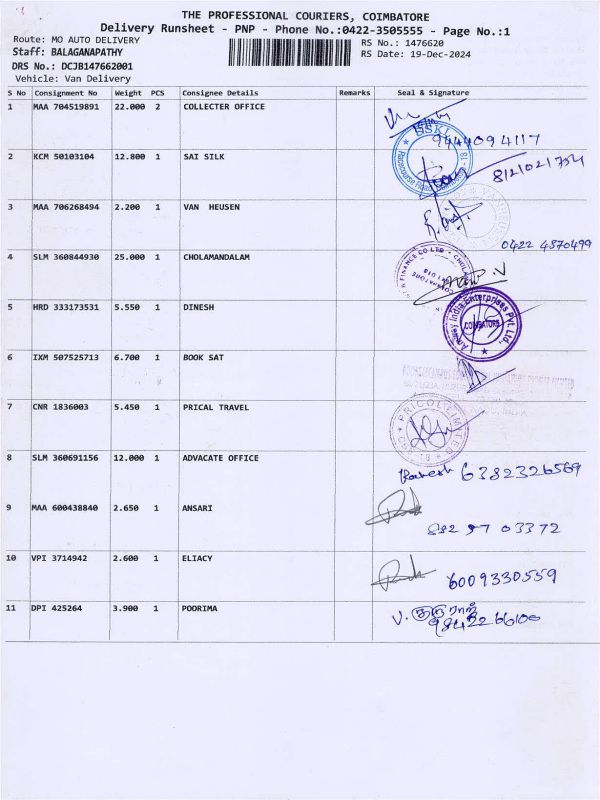 THE PROFESSIONAL COURIERS, COIMBATORE
Delivery Runsheet - PNP - Phone No.:0422-3505555 - Page No.:1
Route: MO AUTO DELIVERY
RS No.: 1476620
Staff: BALAGANAPATHY
RS Date: 19-Dec-2024
DRS No.: DCJB147662001
Vehicle: Van Delivery
S No Consignment No Weight PCS Consignee Details Remarks Seal & Signature
1 MAA 704519891 22.000 2 COLLECTER OFFICE
9444094117
2 KCM 50103104 12.800 1 SAI SILK
8121021754
3 MAA 706268494 2.200 1 VAN HEUSEN
0422 4370499
4 SLM 360844930 25.000 1 CHOLAMANDALAM
5 HRD 333173531 5.550 1 DINESH
Amway India Enterprises Pvt. Ltd.
COIMBATORE
6 IXM 507525713 6.700 1 BOOK SAT
7 CNR 1836003 5.450 1 PRICAL TRAVEL
PRICOL LIMITED
8 SLM 360691156 12.000 1 ADVACATE OFFICE
6382326569
9 MAA 600438840 2.650 1 ANSARI
882 97 03372
10 VPI 3714942 2.600 1 ELIACY
6009330559
11 DPI 425264 3.900 1 POORIMA
V. குருராஜ்
9842266100